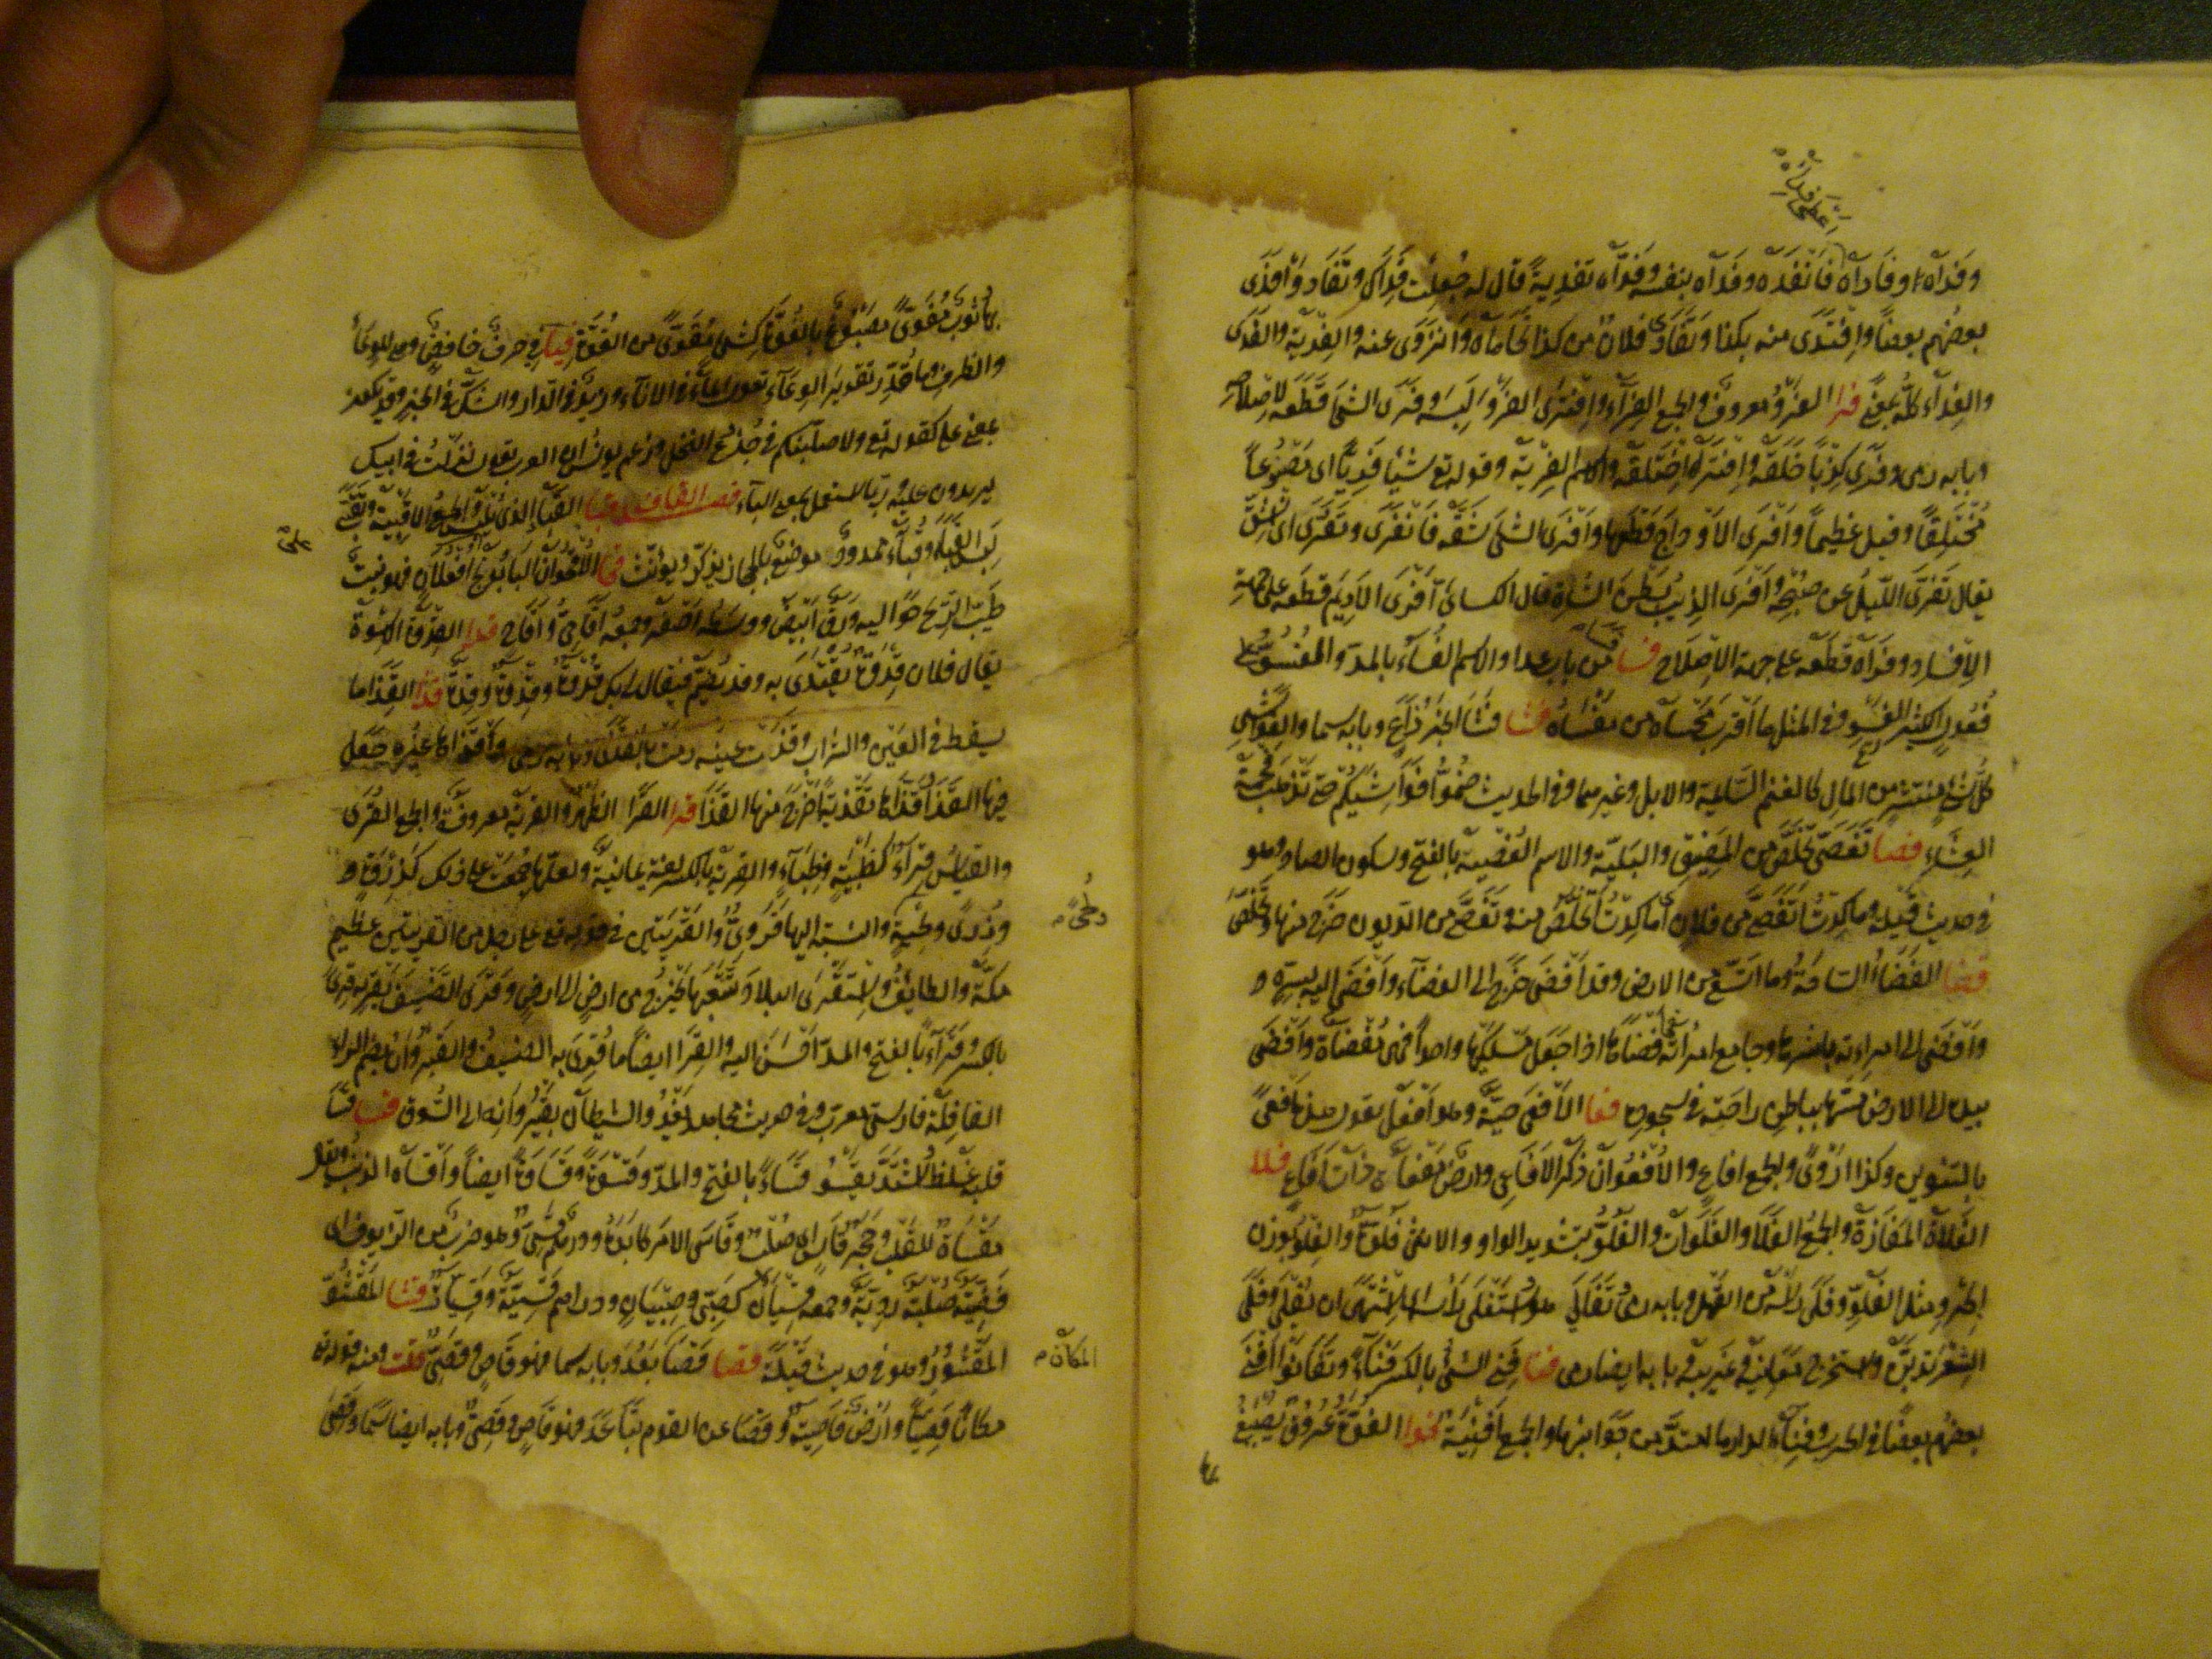 وفداه وفاداه فانفده وفداه بنفسه وفداه تفدية قال له جعلت فداك وتفادوا فدى
بعضهم بعضا وافتدى منه بكذا وتفادى فلان من كذا تحاماه وانزوى عنه والفدية والفدى
والفداء كله بمعنى فرا الفرو معروف والجمع الفراء وافترى الفرو لبسه وفرى الشئ قطعه لاصلاحه
وبابه رمى وفرى كذبا خلقه وافتراه اختلقه والاسم الفرية وقوله تع شيئا فريا اى مصنوعا
مختلقا وقيل عظيما وافرى الاوداج قطعها وافرى الشئ شقه فانفرى وتفرى اى انشق
يقال تفرى الليل عن صبحه وافرى الذيب بطن الشاة قال الكسائى افرى الاديم قطعه على جهة
الافساد وفراه قطعه على جهة الاصلاح فسا من باب عدا والاسم الفساء بالمد والفسو على
فعول الكثير الفسو وفى المثل ما اقرب محساه من مفساه فشا فشا الخبر ذاع وبابه سما والفواشى
كل شئ منتشر من المال كالغنم السائمة والابل وغيرهما وفى الحديث ضموا فواشيكم حتى تذهب فحمة
العشاء فصا تفصى تخلص من المضيق والبلية والاسم الفصية بالفتح وسكون الصاد وهو
فى حديث قيلة وما كدت اتفصى من فلان اى ما كدت اتخلص منه وتفصى من الديون خرج منها وتخلص
فضا الفضاء الساحة وما اتسع من الارض وقد افضى خرج الى الفضاء وافضى اليه بسره و
وافضى الى امراءته باشرها وجامع امرأته فافضاها اذا جعل مسلكيها واحدا فهى مفضاة وافضى
بيده الى الارض مسها بباطن راحته فى سجوده فعا الافعى حية وهو افعل يقول هذه افعى
بالتنوين وكذا اروى والجمع افاع والافعوان ذكر الافاعى وارض مفعاة ذات افاع فلا
الفلاة المفازة والجمع الفلا والفلوات والفلو بتشديد الواو والانثى فلوة والفلو بوزن
الجرو مثل الفلو وفلى راسه من القمل وبابه رمى وتفالى هو واستفلى راسه اى اشتهى ان يفلى وفلى
الشعر تدبره واستخرج معانيه وغريبه بابه ايضا رمى فنا فنى الشئ بالكسر فناء وتفانوا افنى
بعضهم بعضا فى الحرب وفناء الدار ما امتد من جوانبها والجمع افنية فوا الفوة عروق يصبغ
بها
بها ثوب مفوى مصبوغ بالفوة كشئ مقوى من القوة فيا فى حرف خافض وهو للوعاء
والظرف وما قدر تقدير الوعاء تقول الماء فى الاناء وزيد فى الدار والشك فى الخبر وقد يكون
بمعنى على كقوله تع ولاصلبنكم فى جذوع النخل وزعم يونس ان العرب تقول نزلت فى ابيك
يريدون عليه وربما استعمل بمعنى الباء فصل القاف قبا القباء الذى يلبس والجمع الاقبية وتقبى
لبس القباء وقباء ممدود موضع بالحجاز يذكر ويؤنث قحا الاقحوان البابونج افعلان وهو نبت
طيب الريح حواليه ورق ابيض ووسطه اصفر وجمعه اقاحى واقاح قدا القدوة الاسوة
يقال فلان قدوة يقتدى به وقد يضم فيقال لى بك قدوة وقدوة وقدة قذا القذا ما
يسقط فى العين والشراب وقذت عينه رمت بالقذى وبابه رمى واقذاها غيره جعل
فيها القذا وقذاها تقذية اخرج منها القذا قرا القرا الظهر والقرية معروفة والجمع القرى
والقياس قراء كظبية وظباء والقرية بالكسر لغة يمانية ولعلها جمعت على ذلك كذروة و
وذرى ولحية ولحى والنسبة اليها قروى والقريتين فى قوله تع على رجل من القريتين عظيم
مكة والطائف واستقرى البلاد تتبعها يخرج من ارض الى ارض وقرى الضيف يقريه قرى
بالكسر وقراء بالفتح والمد احسن اليه والقرا ايضا ما قرى به الضيف والقيروان بضم الراء
القافلة فارسى معرب وفى حديث مجاهد يغدو الشيطان بقيروانه الى السوق قسا قسا
قلبه غلظ واشتد يقسو قساء بالفتح والمد وقسوة وقساوة ايضا واقساه الذنب ويقال
مقساة للقلب وحجر قاس اى صلب وقاسى الامر كابده ودرهم قسى وهو ضرب من الزيوف اى
فضته صلبة ردية وجمعه قسيان كصبى وصبيان ودراهم قسية وقسيات قشا المقشو
المقشور وهو فى حديث قيلة قصا قصا بعد وبابه سما فهو قاص وقصى قلت ومنه قوله تع
مكانا قصيا وارض قاصية وقصا عن القوم تباعد فهو قاص وقصى وبابه ايضا سما وقصى
المكان م